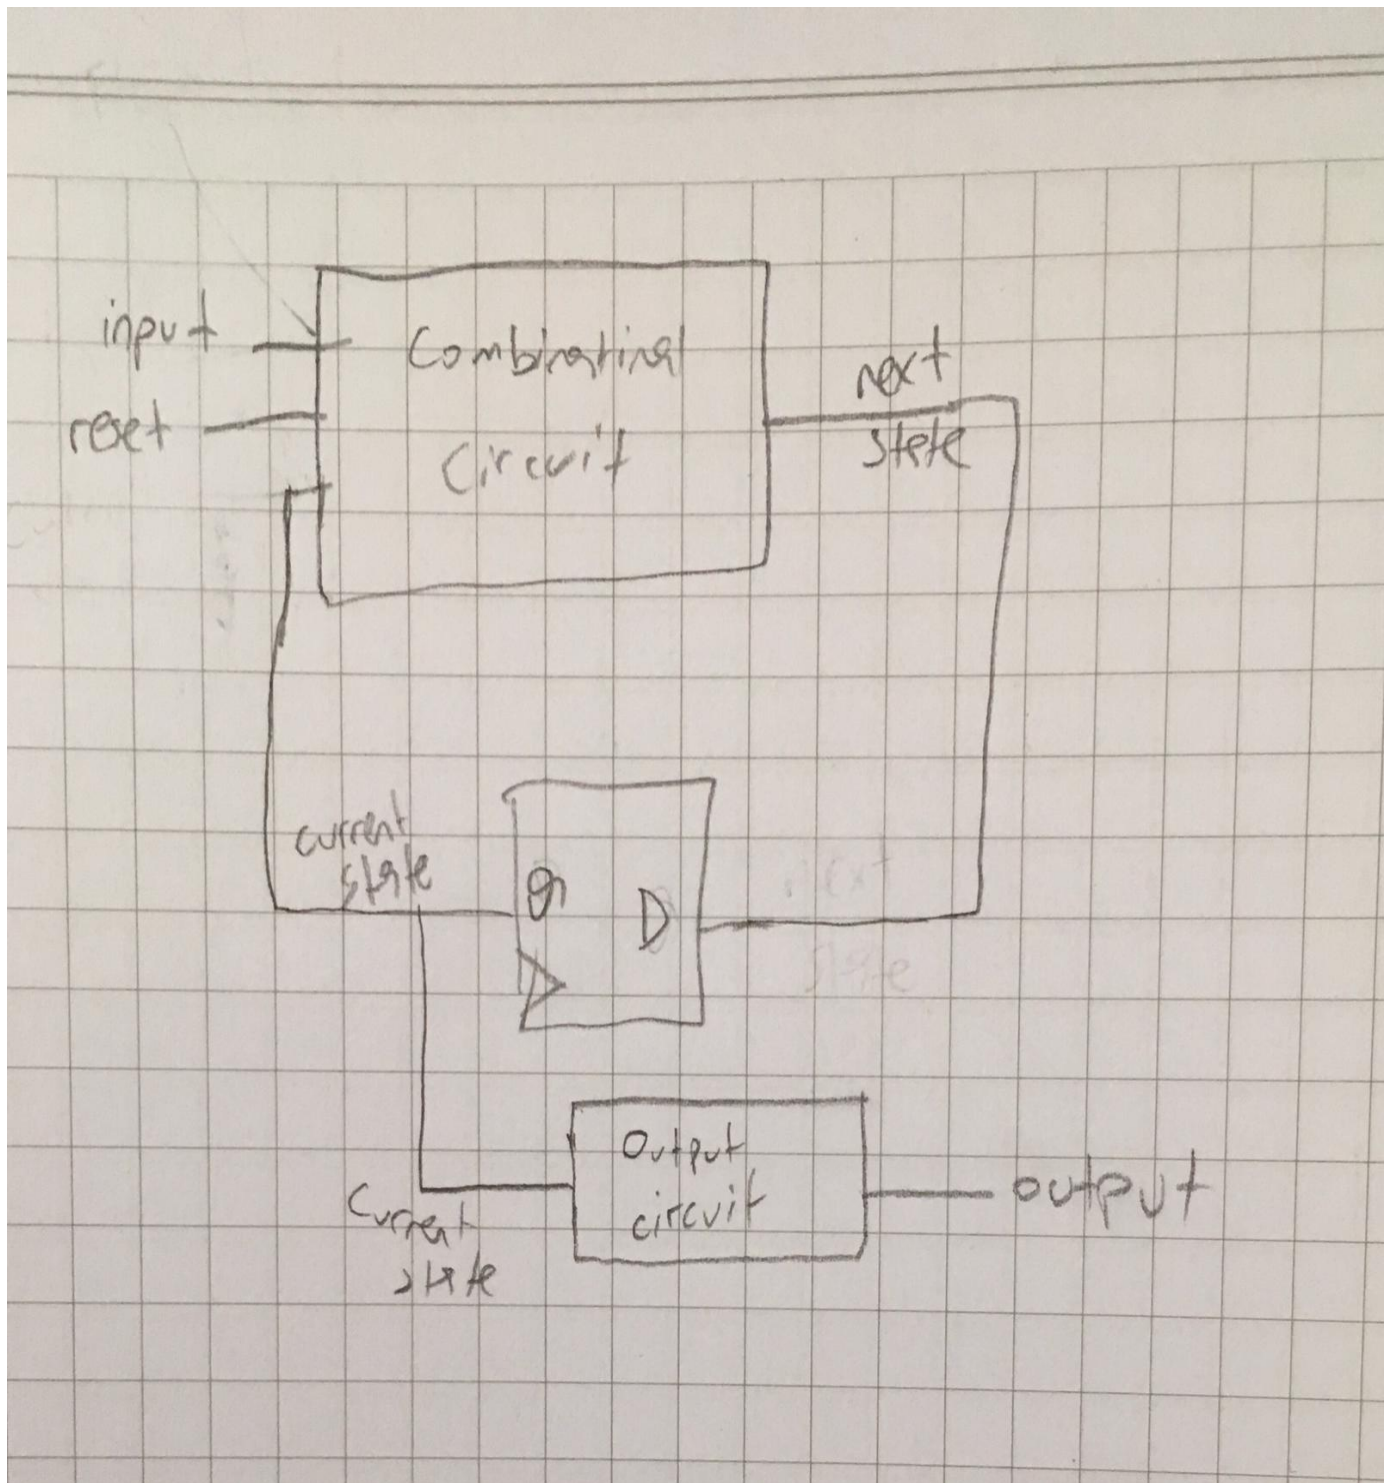 input
reset
Combinatinal
Circuit
next
state
current
state
Q
D
next
state
Output
circuit
output
Current
state